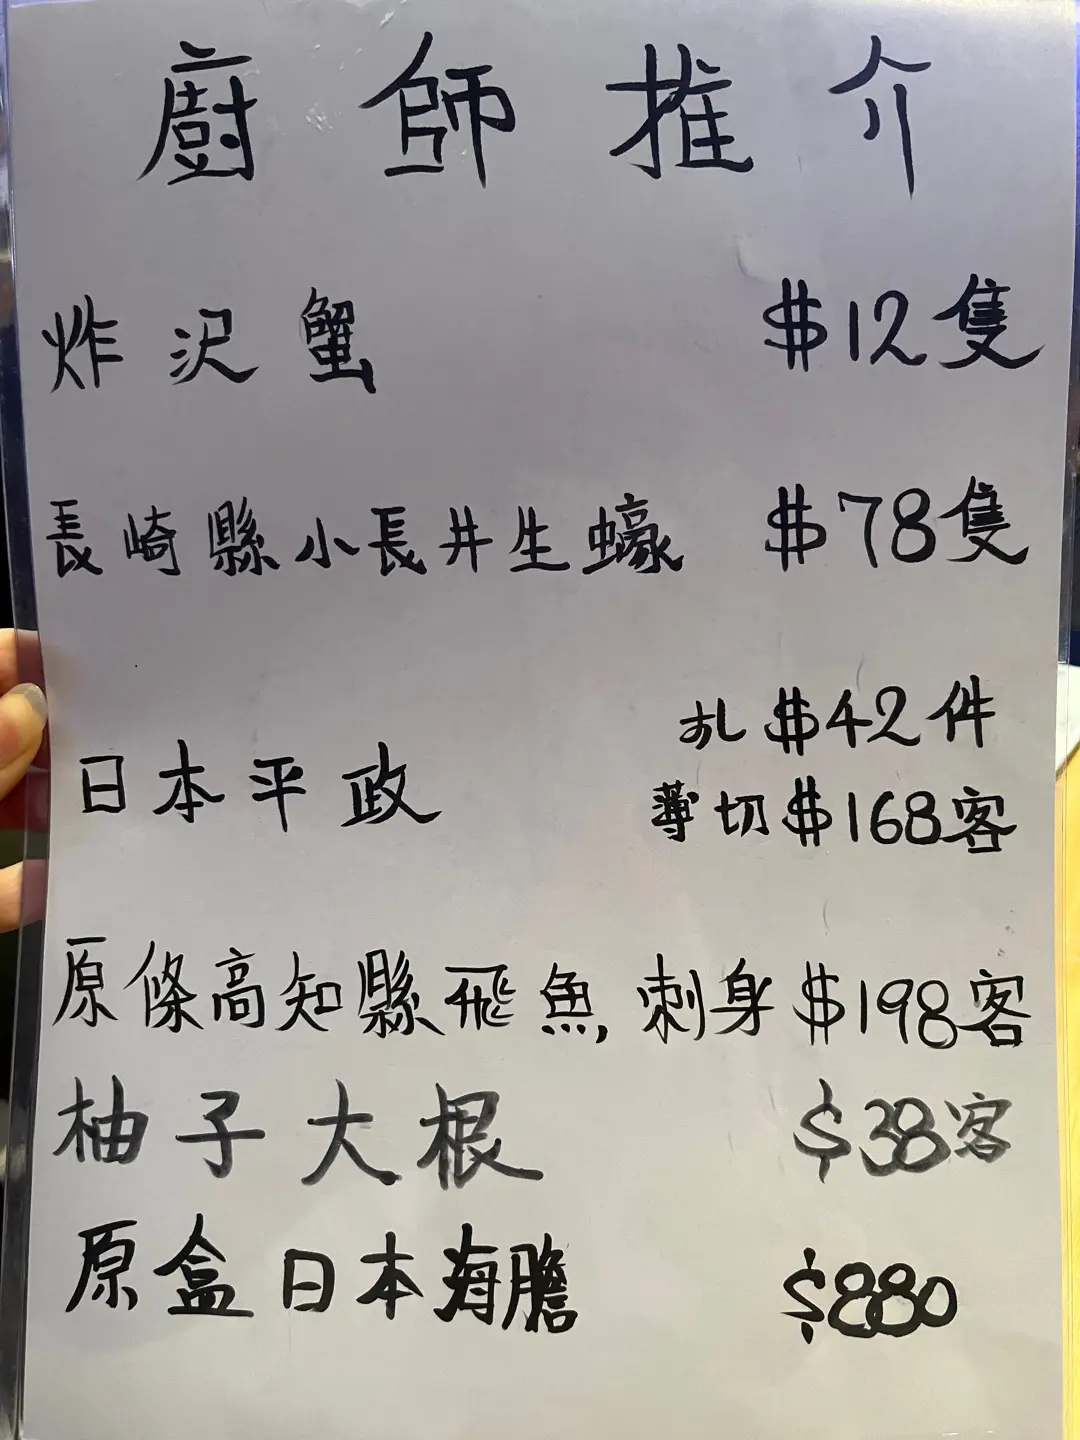 廚師推介
炸沢蟹 $12隻
長崎縣小長井生蠔 $78隻
日本平政 $42件
薄切 $168客
原條高知縣飛魚刺身 $198客
柚子大根 $38客
原盒日本海膽 $880